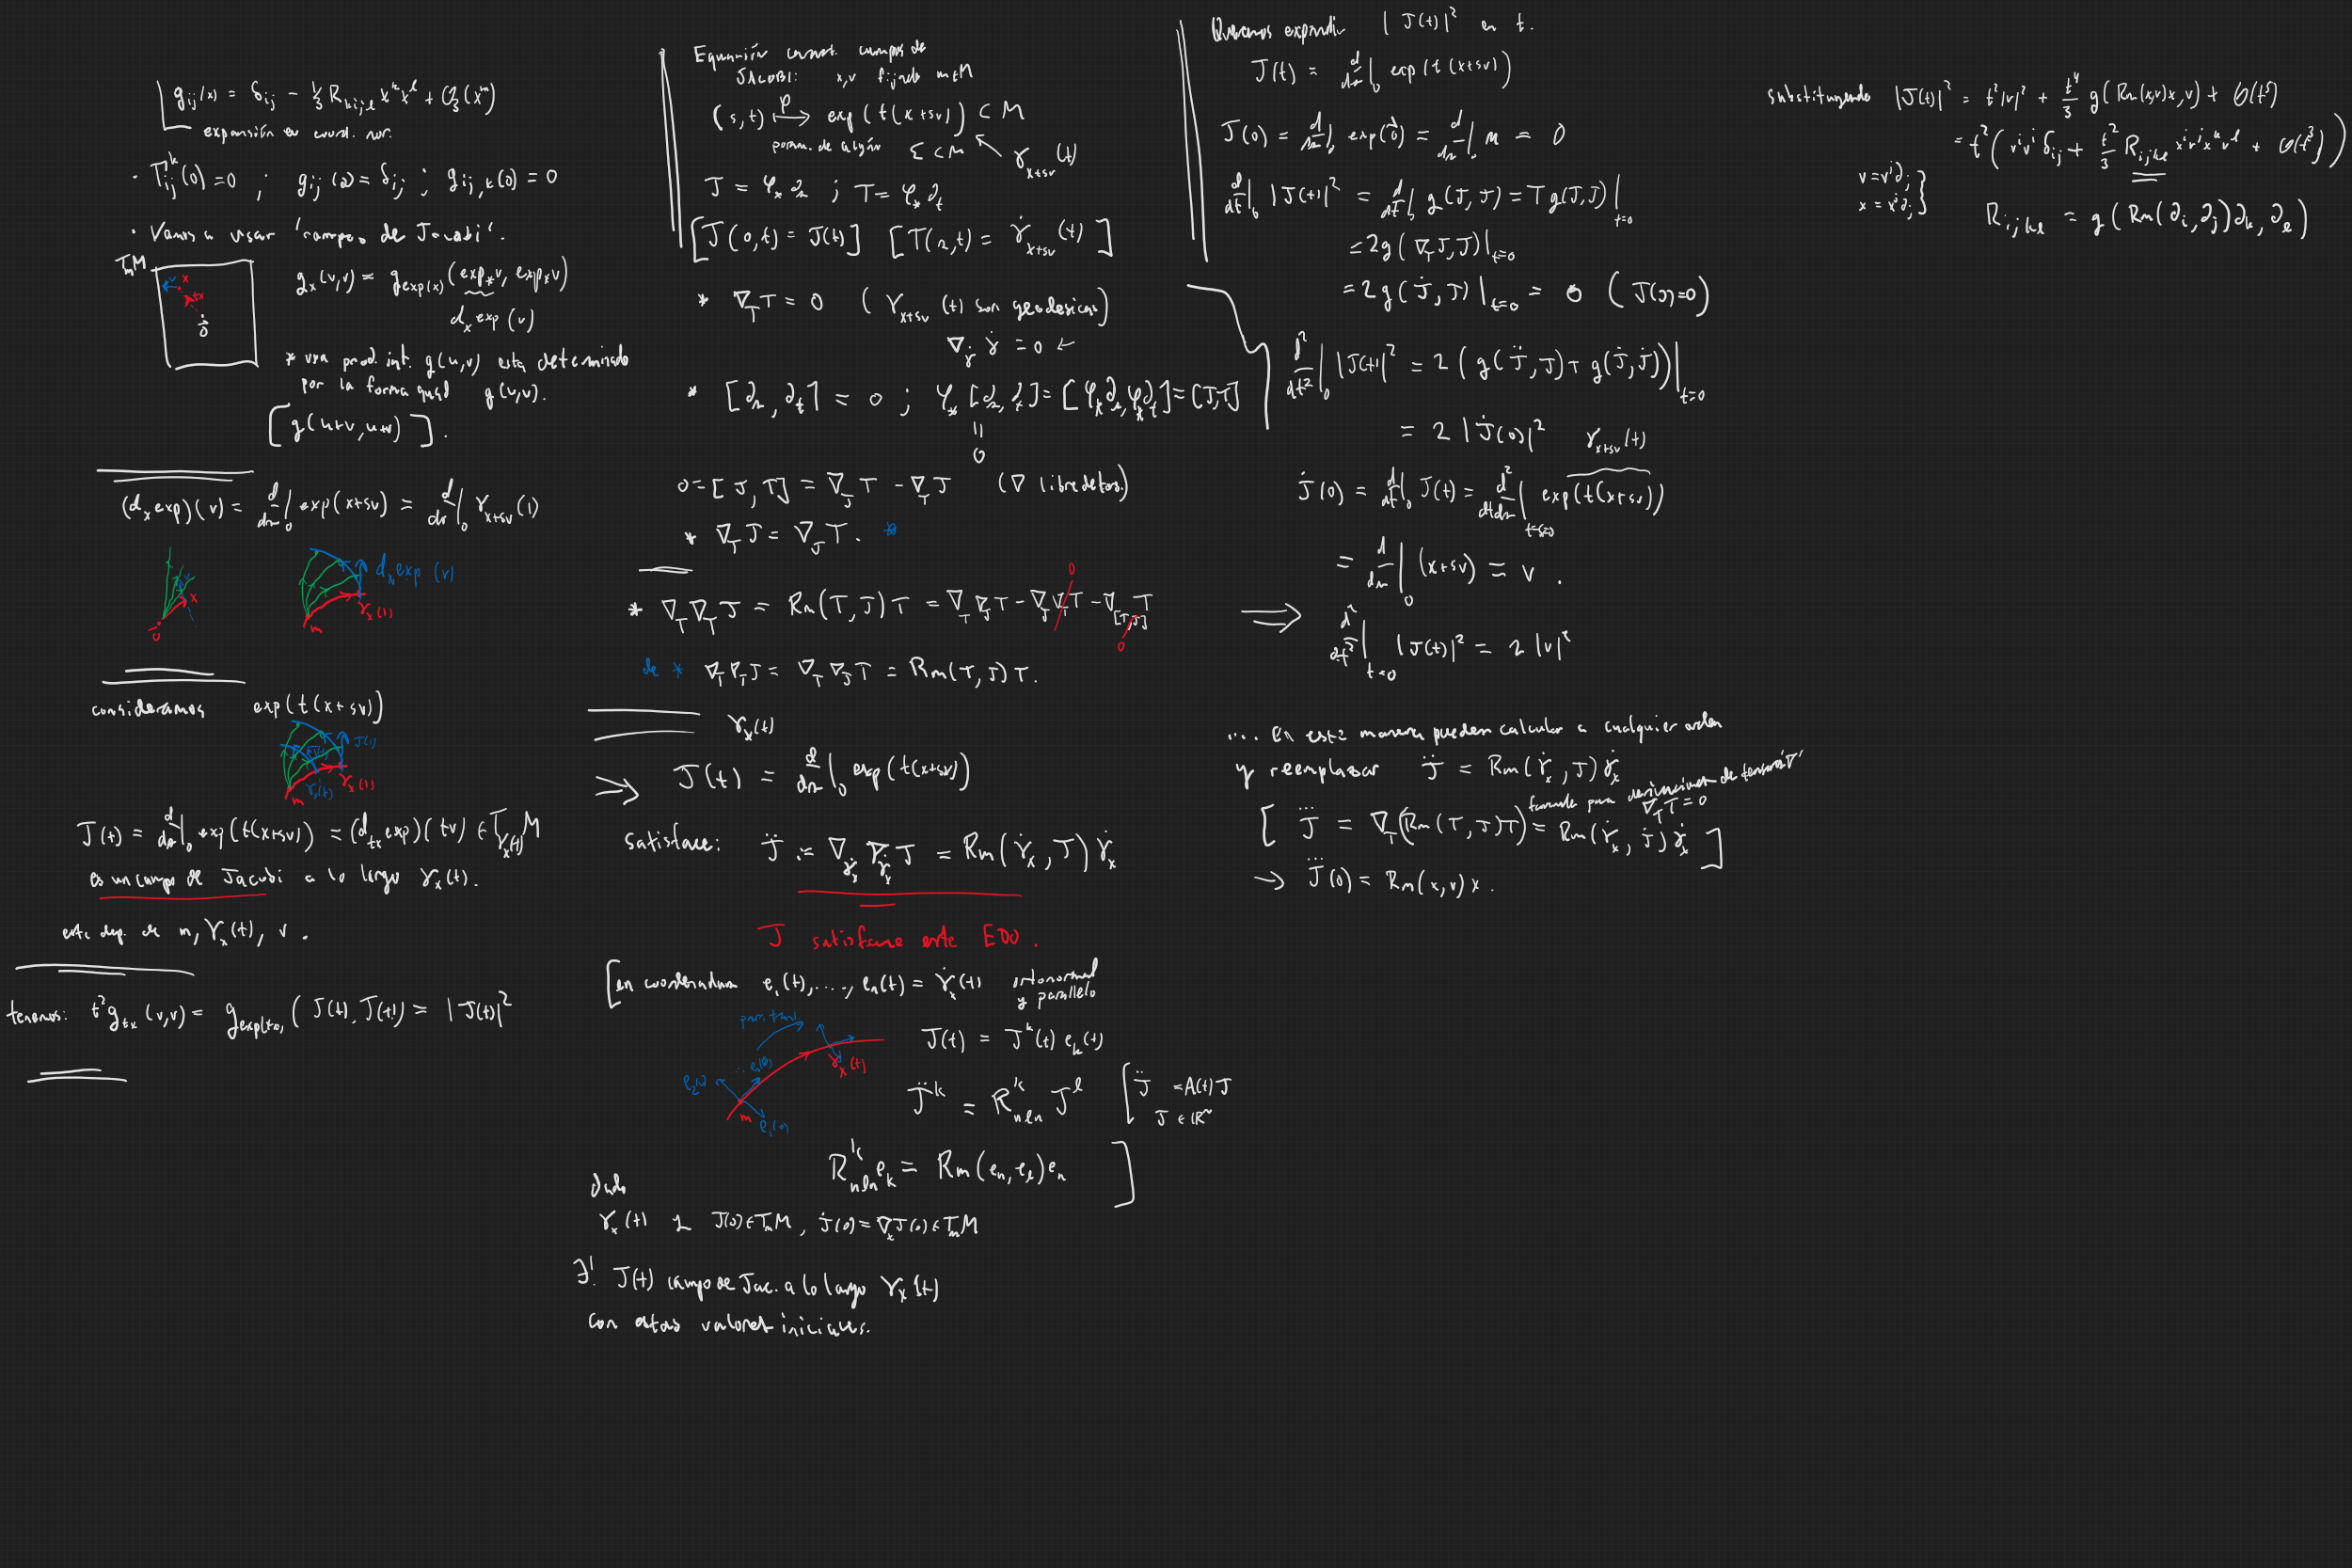 g_{ij}(x) = δ_{ij} - 1/3 R_{kijl} x^k x^l + O_3(x^m)
expansión en coord. nor.
· Γ^k_{ij}(0) = 0 ; g_{ij}(0) = δ_{ij} ; g_{ij,k}(0) = 0
· Vamos a usar 'campos de Jacobi'.
T_mM
v x
tx
0
g_x(v,v) = g_{exp(x)}(exp_* v, exp_* v)
d_x exp(v)
* una prod. int. g(u,v) está determinado
por la forma quad g(v,v).
[ g(u+v, u+v) ].
(d_x exp)(v) = d/ds|_0 exp(x+sv) = d/ds|_0 γ_{x+sv}(1)
v x 0
d_x exp(v)
γ_x(1)
m
consideramos exp(t(x+sv))
J(t) J(1)
γ_x(t) γ_x(1)
m
J(t) = d/ds|_0 exp(t(x+sv)) = (d_{tx} exp)(tv) ∈ T_{γ_x(t)}M
es un campo de Jacobi a lo largo γ_x(t).
este dep. de m, γ_x(t), v.
tenemos: t² g_{tx}(v,v) = g_{exp(tx)}(J(t), J(t)) = |J(t)|²
Equanión const. campos de
JACOBI: x,v fijado m∈M
(s,t) ↦^φ exp(t(x+sv)) ⊂ M
param. de algún Σ ⊂ M γ_{x+sv}(t)
J = φ_* ∂_s ; T = φ_* ∂_t
[J(0,t) = J(t)] [T(s,t) = γ̇_{x+sv}(t)]
* ∇_T T = 0 (γ_{x+sv}(t) son geodesicas)
∇_γ̇ γ̇ = 0 ←
* [∂_s, ∂_t] = 0 ; φ_*[∂_s, ∂_t] = [φ_*∂_s, φ_*∂_t] = [J,T]
||
0
0 = [J,T] = ∇_J T - ∇_T J (∇ libre de tors.)
* ∇_T J = ∇_J T. *
* ∇_T ∇_T J = Rm(T,J)T = ∇_T ∇_J T - ∇_J ∇_T T - ∇_{[T,J]} T
0 0
de * ∇_T ∇_T J = ∇_T ∇_J T = Rm(T,J)T.
γ_x(t)
⇒ J(t) = d/ds|_0 exp(t(x+sv))
satisface: J̈ := ∇_{γ̇_x} ∇_{γ̇_x} J = Rm(γ̇_x, J)γ̇_x
J satisface este EDO.
[en coordenadas e_1(t), ..., e_n(t) = γ̇_x(t) ortonormal
y parallelo
par. tran.
e_2(0) e_n(0) γ_x(t)
m e_1(0)
J(t) = J^k(t) e_k(t)
J̈^k = R^k_{nln} J^l [ J̈ = A(t)J
J ∈ ℝ^n
R^k_{nln} e_k = Rm(e_n, e_l)e_n ]
dado
γ_x(t) y J(0) ∈ T_mM, J̇(0) = ∇_x J(0) ∈ T_mM
∃! J(t) campo de Jac. a lo largo γ_x(t)
con estas valores iniciales.
Queremos expandir |J(t)|² en t.
J(t) = d/ds|_0 exp(t(x+sv))
J(0) = d/ds|_0 exp(0) = d/ds|_0 m = 0
d/dt|_0 |J(t)|² = d/dt|_0 g(J,J) = T g(J,J)|_{t=0}
= 2g(∇_T J, J)|_{t=0}
= 2g(J̇, J)|_{t=0} = 0 (J(0)=0)
d²/dt²|_0 |J(t)|² = 2(g(J̈,J) + g(J̇,J̇))|_{t=0}
= 2|J̇(0)|² γ_{x+sv}(t)
J̇(0) = d/dt|_0 J(t) = d²/dtds|_{t=s=0} exp(t(x+sv))
= d/ds|_0 (x+sv) = v.
⇒ d²/dt²|_{t=0} |J(t)|² = 2|v|²
.... En esta manera pueden calcular a cualquier orden
y reemplazar J̈ = Rm(γ̇_x, J)γ̇_x
formula para derivaciones de tensores
∇_T T = 0
[ J⃛ = ∇_T(Rm(T,J)T) = Rm(γ̇_x, J̇)γ̇_x ]
→ J⃛(0) = Rm(x,v)x.
substituyendo |J(t)|² = t²|v|² + t⁴/3 g(Rm(x,v)x,v) + O(t⁵)
= t²(v^i v^j δ_{ij} + t²/3 R_{ijkl} x^i v^j x^k v^l + O(t³))
v = v^j ∂_j
x = x^j ∂_j }
R_{ijkl} = g(Rm(∂_i, ∂_j)∂_k, ∂_l)